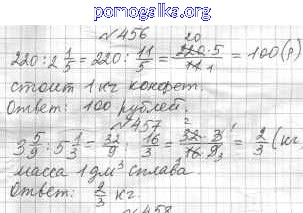 pomogalka.org
№456
220 : 2 1/5 = 220 : 11/5 = 220·5/11·1 = 100 (р)
стоит 1 кг конфет.
Ответ: 100 рублей.
№457
3 5/9 : 5 1/3 = 32/9 : 16/3 = 32·3/16·9 = 2/3 (кг
масса 1 дм³ сплава
Ответ: 2/3 кг.
№458